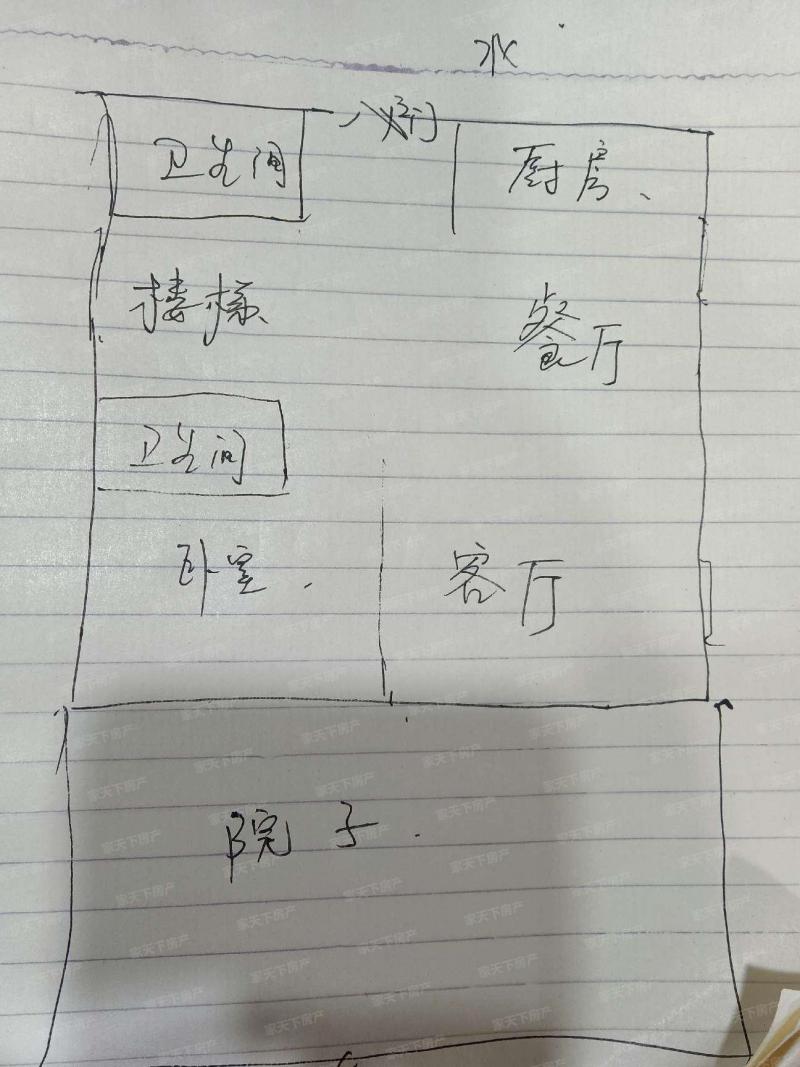 水
入户门
卫生间
厨房、
楼梯、
餐厅
卫生间
卧室.
客厅
院子.
家天下房产